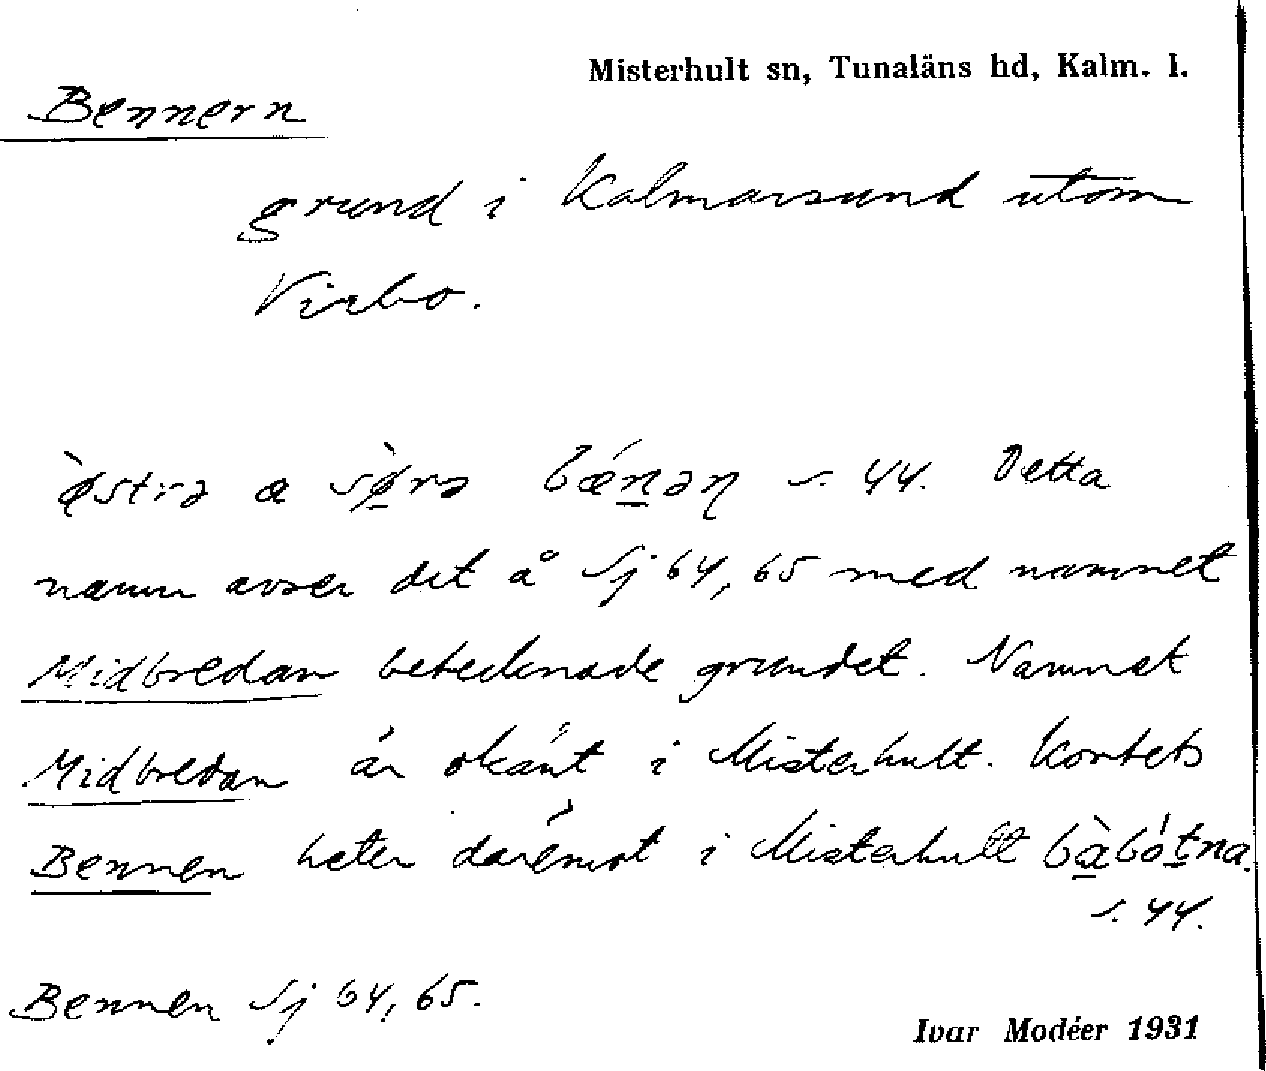 Misterhult sn, Tunaläns hd, Kalm. l.
Bennern
grund i Kalmarsund utom
Virbo.
ø̀strə a sø̀rə bǽnəɳ s. 44. Detta
namn avser det å Sj 64, 65 med namnet
Midbredan betecknade grundet. Namnet
Midbredan är okänt i Misterhult. Kortets
Bennen heter däremot i Misterhult bàbótna.
s. 44.
Bennen Sj 64, 65.
Ivar Modéer 1931